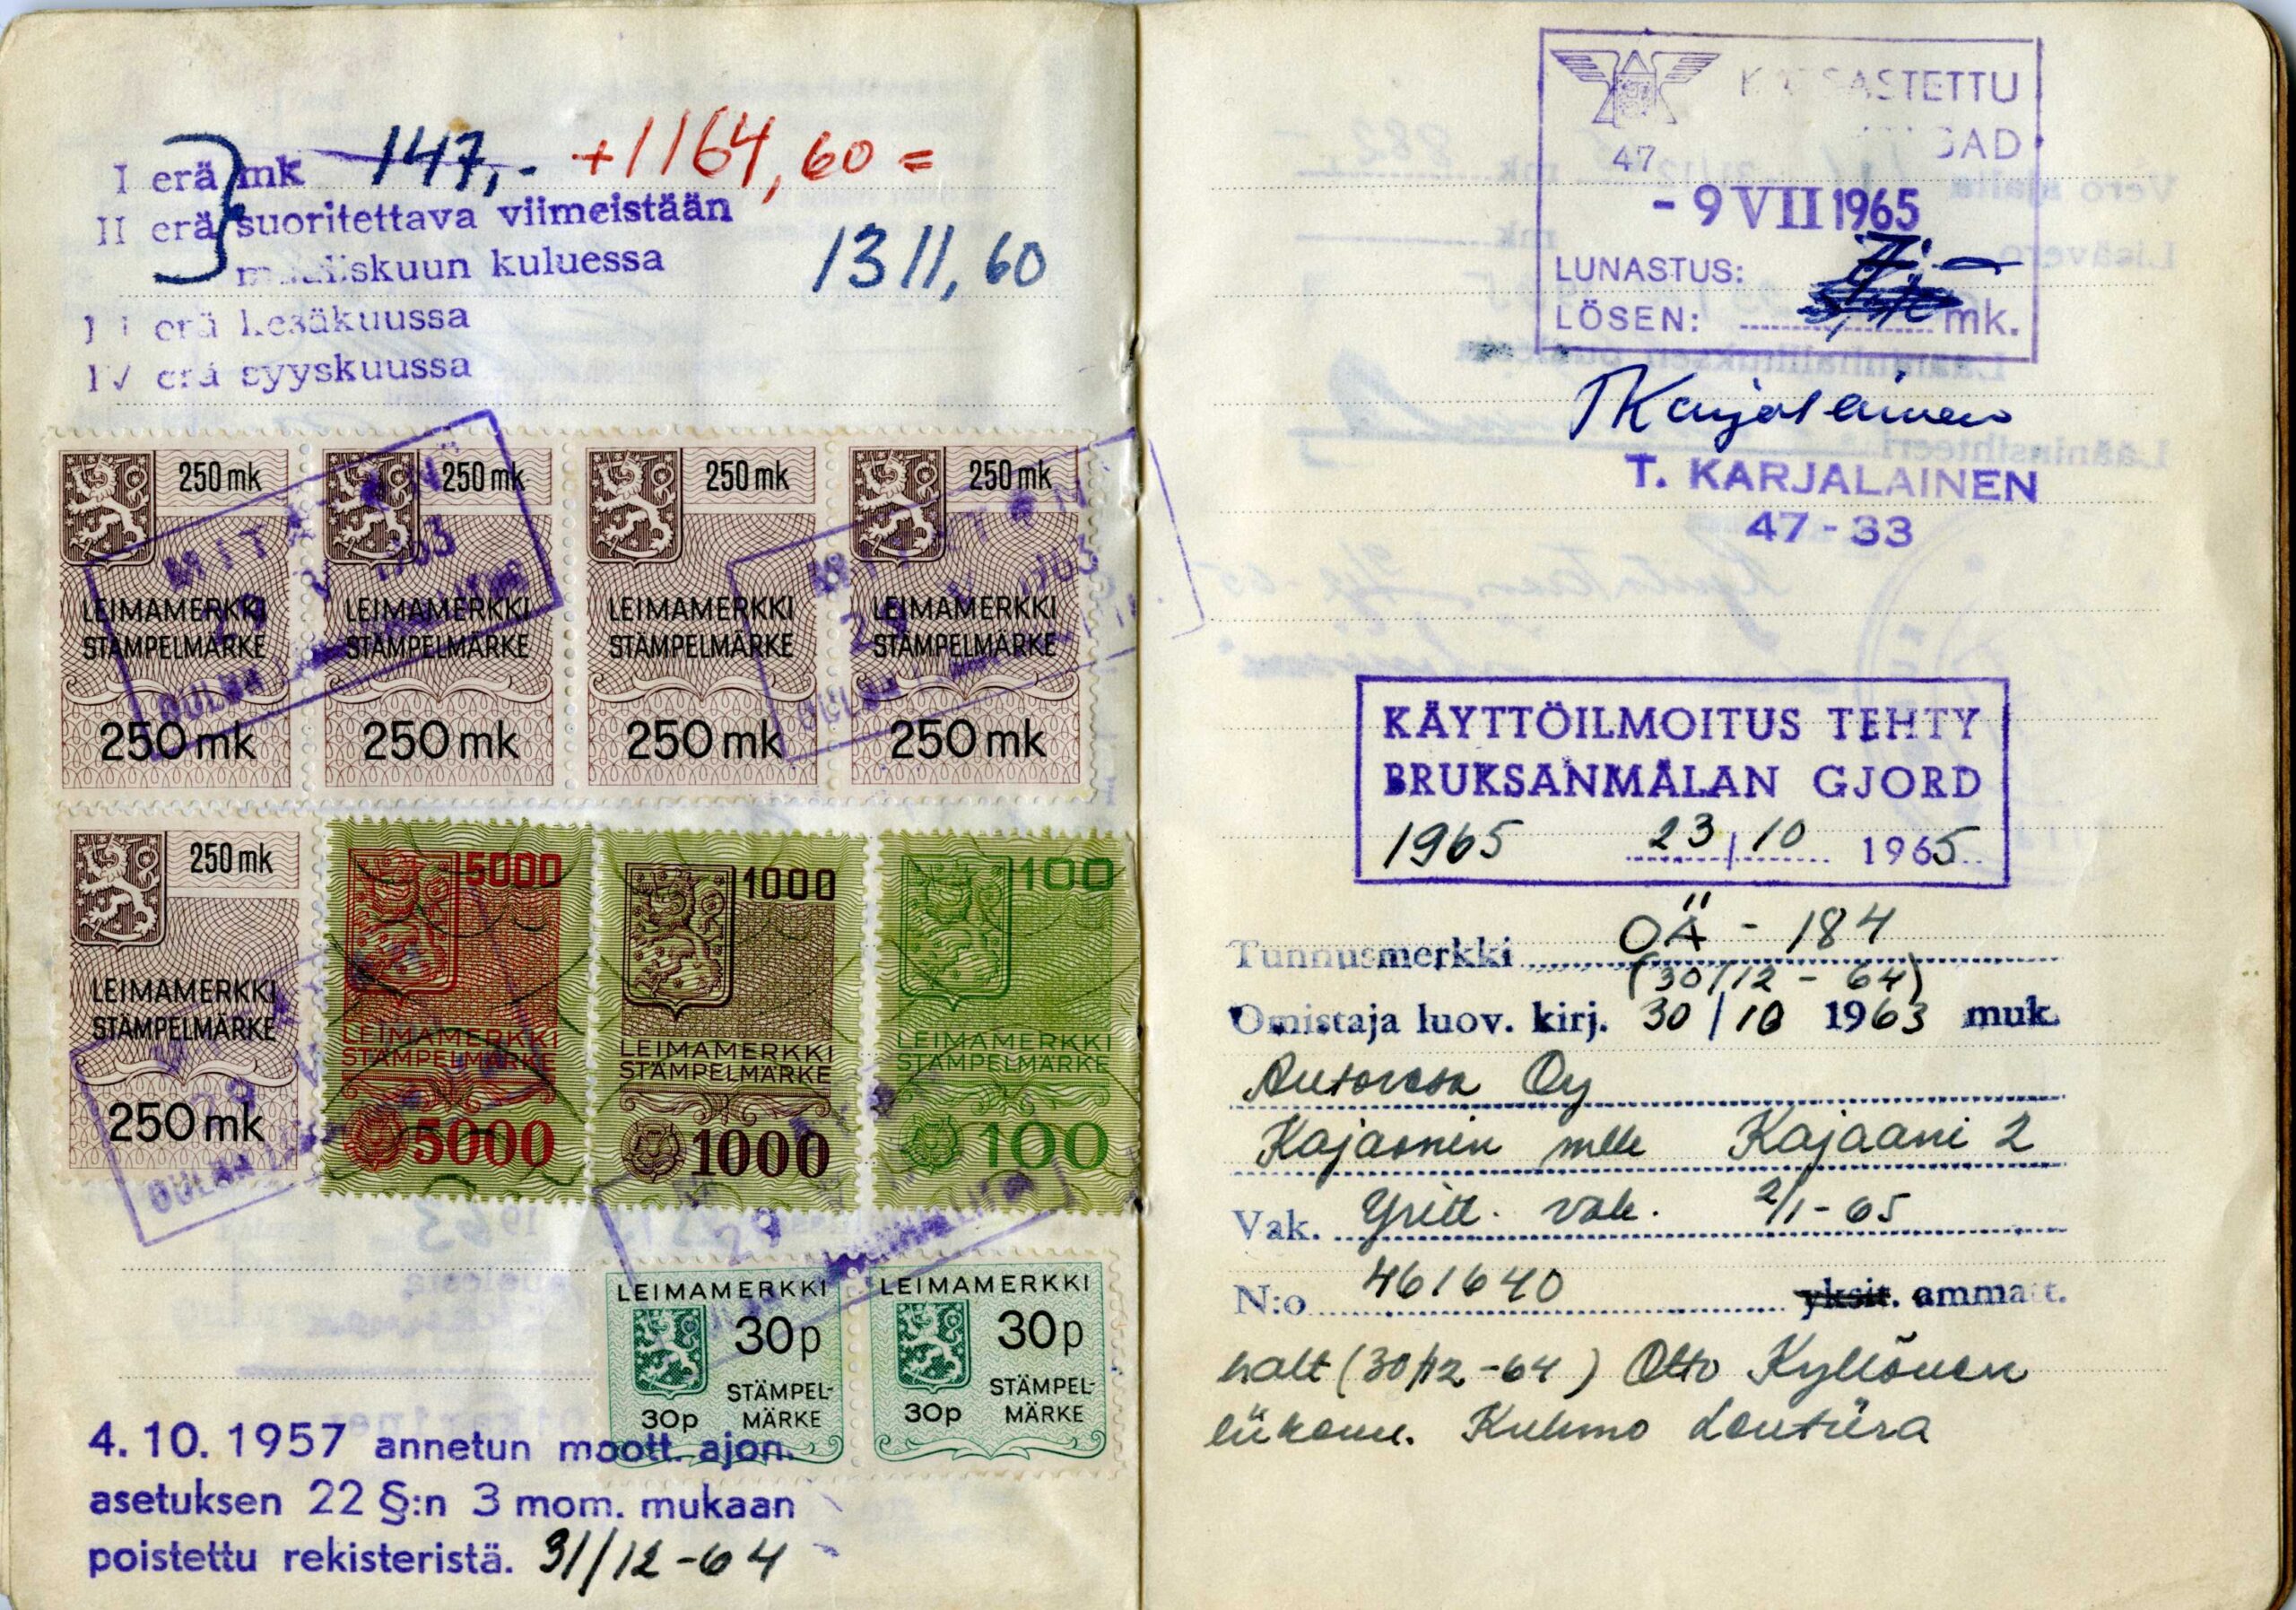 I erä mk 147,- +1164,60 =
II erä suoritettava viimeistään
kuluessa 1311,60
erä kesäkuussa
IV erä syyskuussa
250 mk 250 mk 250 mk 250 mk
LEIMAMERKKI LEIMAMERKKI LEIMAMERKKI LEIMAMERKKI
STÄMPELMÄRKE STÄMPELMÄRKE STÄMPELMÄRKE STÄMPELMÄRKE
250 mk 250 mk 250 mk 250 mk
MITÄTÖN
250 mk 5000 1000 100
LEIMAMERKKI LEIMAMERKKI LEIMAMERKKI LEIMAMERKKI
STÄMPELMÄRKE STÄMPELMÄRKE STÄMPELMÄRKE STÄMPELMÄRKE
250 mk 5000 1000 100
LEIMAMERKKI LEIMAMERKKI
30p 30p
STÄMPEL- STÄMPEL-
30p MÄRKE 30p MÄRKE
4.10.1957 annetun moott. ajon.
asetuksen 22 §:n 3 mom. mukaan
poistettu rekisteristä. 31/12-64
KATSASTETTU
47
- 9 VII 1965
LUNASTUS: 7,-
LÖSEN: mk.
TKarjalainen
T. KARJALAINEN
47-33
KÄYTTÖILMOITUS TEHTY
BRUKSANMÄLAN GJORD
1965 23/10 1965
Tunnusmerkki OÄ - 184
(30/12 - 64)
Omistaja luov. kirj. 30/10 1963 muk.
Oy
Kajaanin mlk Kajaani 2
Vak. Yritt. vak. 2/1-65
N:o 461640 yksit. ammatt.
halt (30/12-64) Otto Kyllönen
Kuhmo Lentiira